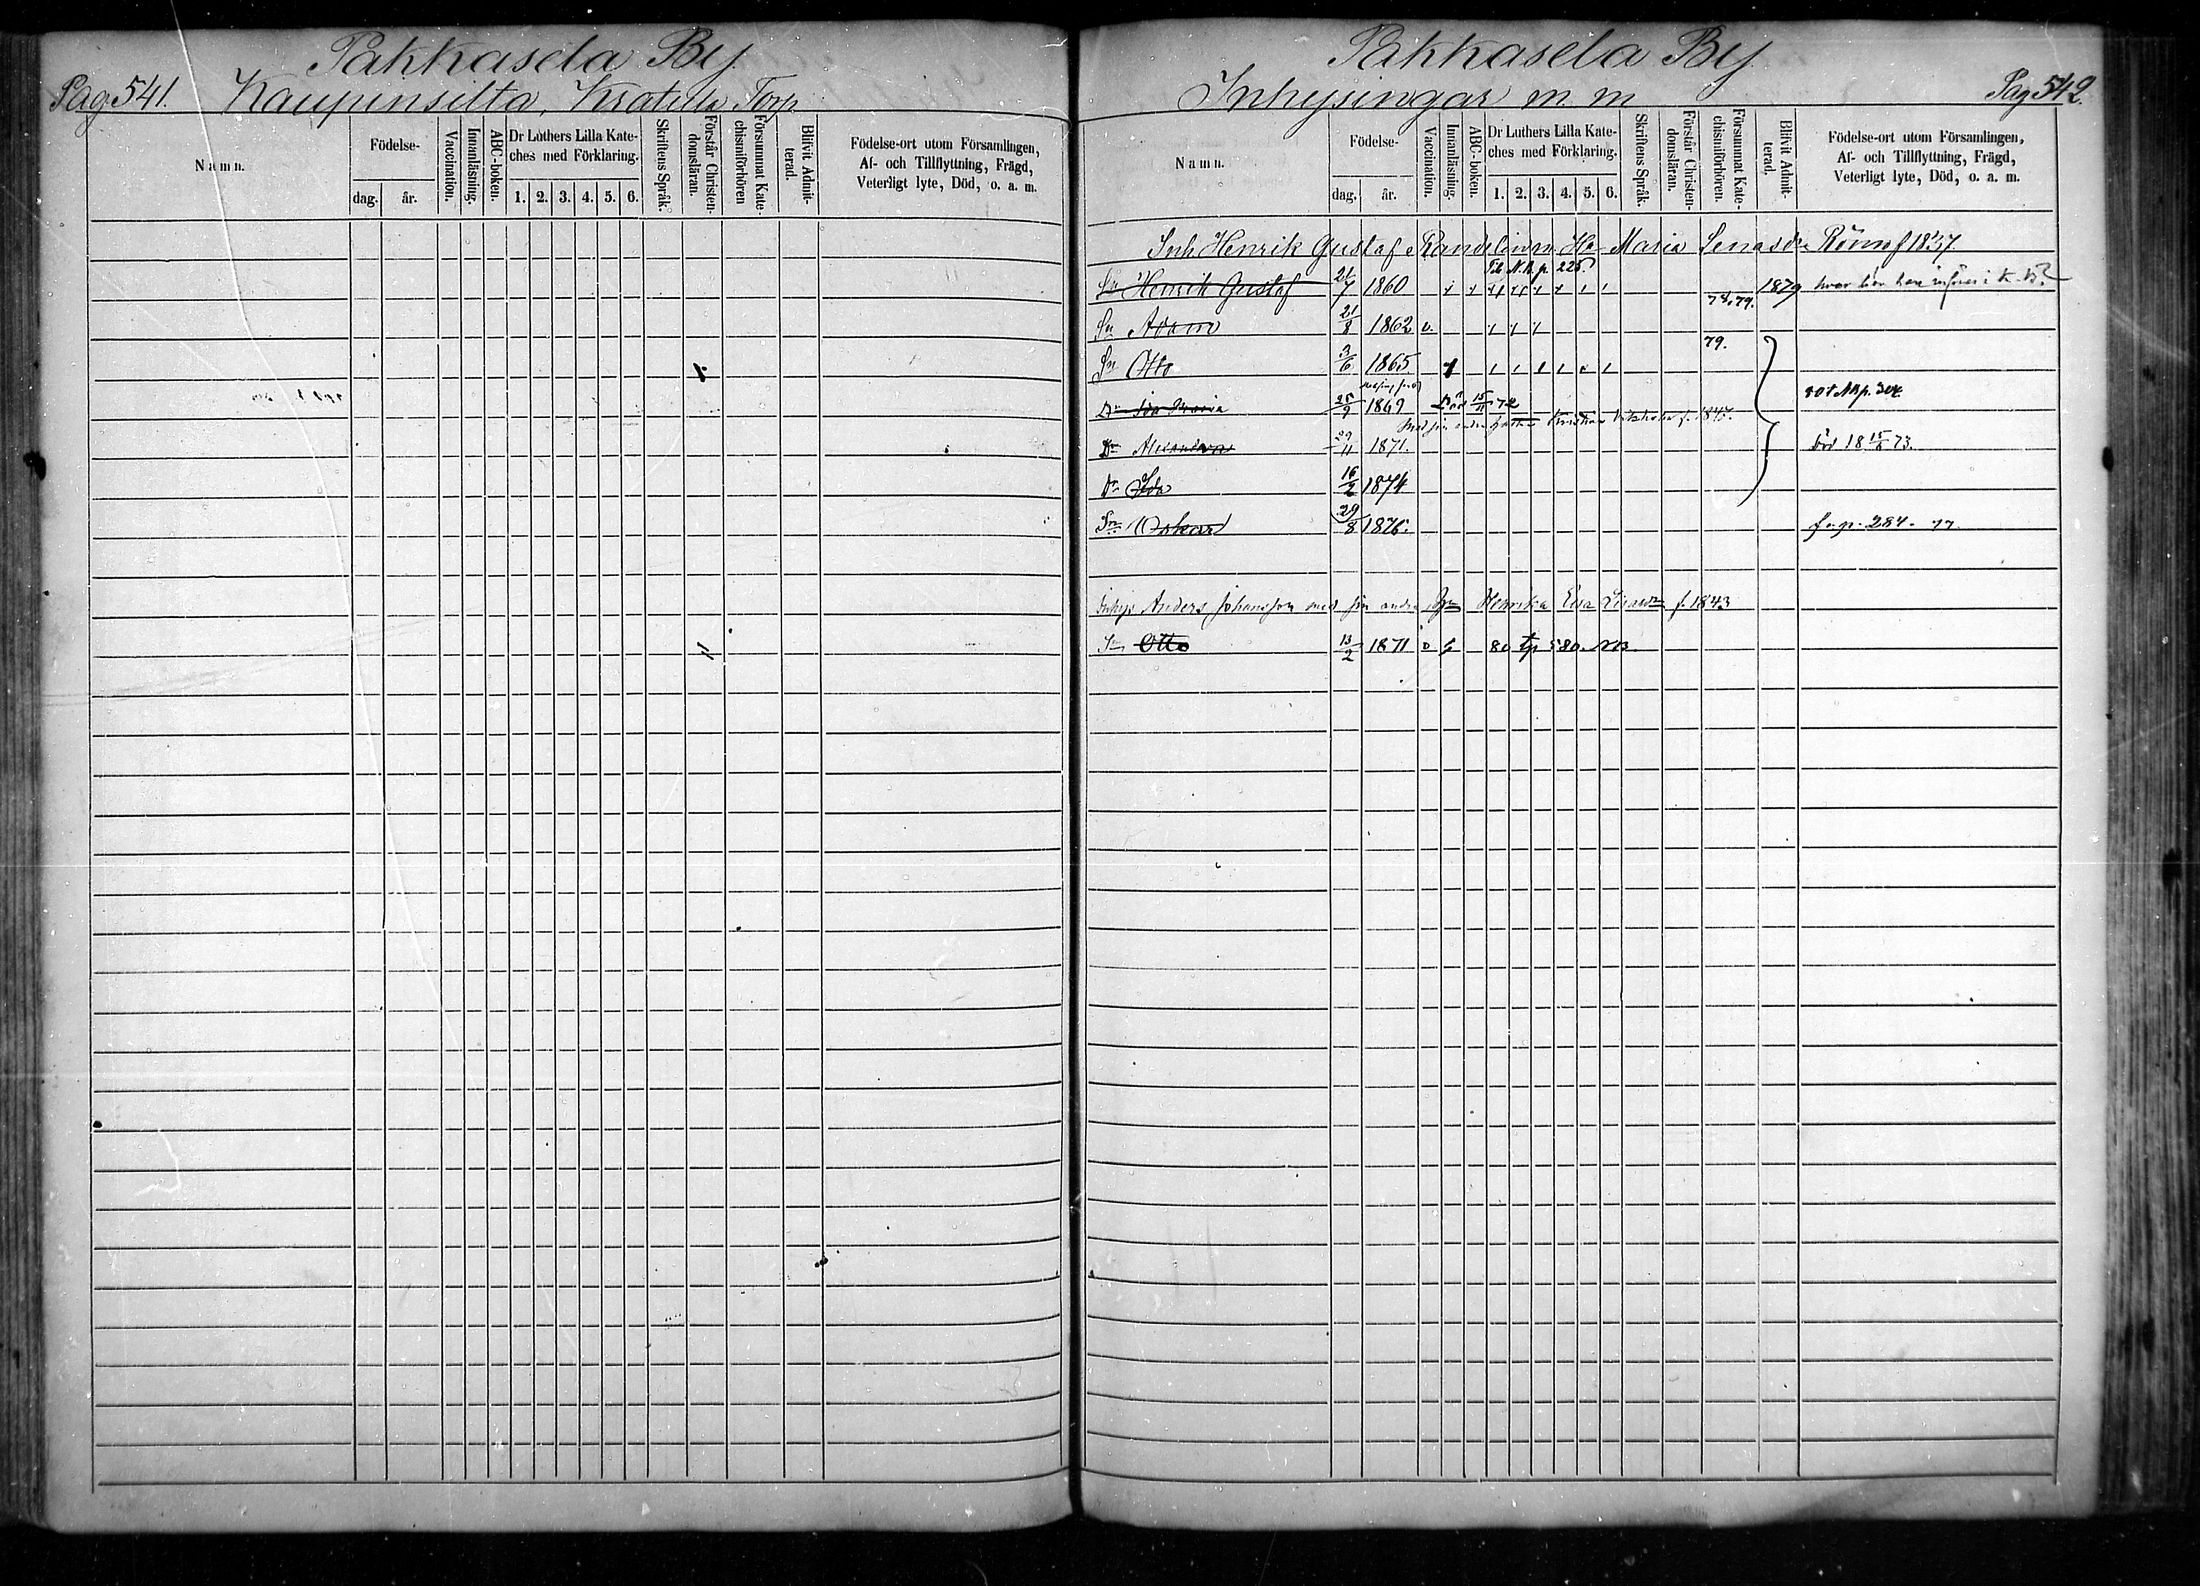 Pag. 541.
Pakkasela By
Kaupinsilta, Kratula Torp
Namn.
Födelse-
dag. år.
Vaccination.
Innanläsning.
ABC-boken.
Dr Luthers Lilla Kate-
ches med Förklaring.
1. 2. 3. 4. 5. 6.
Skriftens Språk.
Förstår Christen-
domsläran.
Försummat Kate-
chismiförhören
Blifvit Admit-
terad.
Födelse-ort utom Församlingen,
Af- och Tillflyttning, Frägd,
Veterligt lyte, Död, o. a. m.
Pakkasela By
Inhysingar m m
Pag. 542.
Namn.
Födelse-
dag. år.
Vaccination.
Innanläsning.
ABC-boken.
Dr Luthers Lilla Kate-
ches med Förklaring.
1. 2. 3. 4. 5. 6.
Skriftens Språk.
Förstår Christen-
domsläran.
Försummat Kate-
chismiförhören.
Blifvit Admit-
terad.
Födelse-ort utom Församlingen,
Af- och Tillflyttning, Frägd,
Veterligt lyte, Död, o. a. m.
Inh. Henrik Gustaf Randelin m. Ha Maria Lenasdr f 1837
N.B. p. 225.
Sn Henrik Gustaf 21/7 1860 78, 79. 1879
Sn Adam 21/8 1862 v.
79.
Sn Otto 3/6 1865
Dr Ida Maria 25/9 1869 Död 15/11 72 80 t NB p. 304
Med sin andra f. 1847.
Dr Alexandra 29/11 1871. Död 18 15/6 73.
Dr Ida 16/2 1874
Sn Oskar 29/8 1876. p. 284. 77.
Inhys Anders Johansson med sin andra Henrika Eva f. 1843
Sn Otto 13/2 1871 v 80 tp 580. NB.